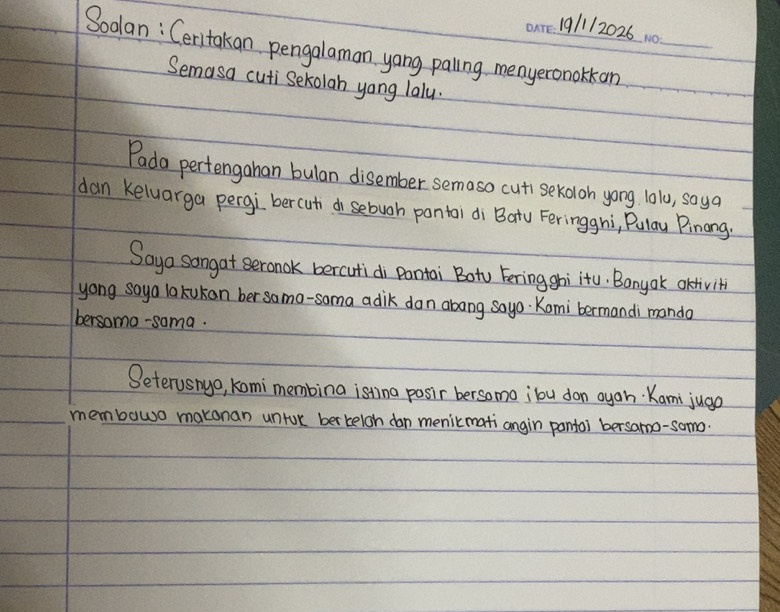 DATE: 19/1/2026 NO:
Soalan : Ceritakan pengalaman yang paling menyeronokkan
Semasa cuti sekolah yang lalu.
Pada pertengahan bulan disember semasa cuti sekolah yang lalu, saya
dan keluarga pergi bercuti di sebuah pantai di Batu Feringghi, Pulau Pinang.
Saya sangat seronok bercuti di Pantai Batu Feringghi itu. Banyak aktiviti
yang saya lakukan bersama-sama adik dan abang saya. Kami bermandi manda
bersama-sama.
Seterusnya, kami membina istina pasir bersama ibu dan ayah. Kami juga
membawa makanan untuk berkelah dan menikmati angin pantai bersama-sama.